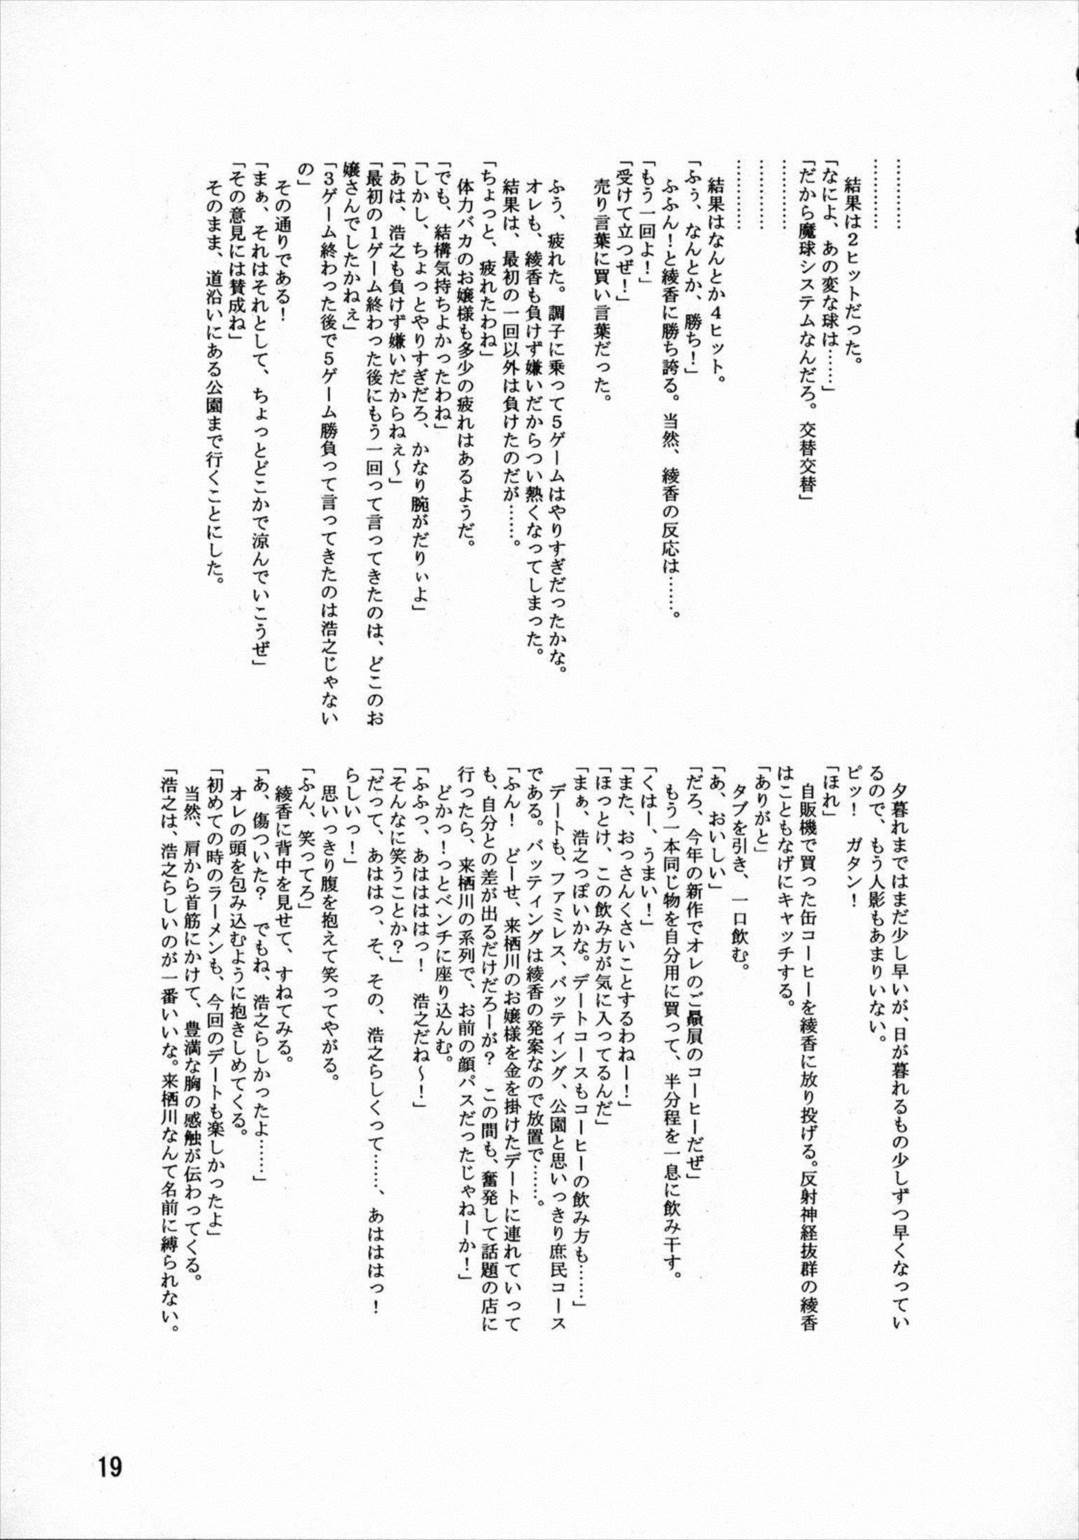 …………
…………
結果は2ヒットだった。
「なによ、あの変な球は……」
「だから魔球システムなんだろ。交替交替」
…………
…………
…………
結果はなんとか4ヒット。
「ふぅ、なんとか、勝ち！」
ふふん！と綾香に勝ち誇る。当然、綾香の反応は……。
「もう一回よ！」
「受けて立つぜ！」
売り言葉に買い言葉だった。
ふう、疲れた。調子に乗って5ゲームはやりすぎだったかな。
オレも、綾香も負けず嫌いだからつい熱くなってしまった。
結果は、最初の一回以外は負けたのだが……。
「ちょっと、疲れたわね」
体力バカのお嬢様も多少の疲れはあるようだ。
「でも、結構気持ちよかったわね」
「しかし、ちょっとやりすぎだろ、かなり腕がだりぃよ」
「あは、浩之も負けず嫌いだからねぇ～」
「最初の1ゲーム終わった後にもう一回って言ってきたのは、どこのお
嬢さんでしたかねぇ」
「3ゲーム終わった後で5ゲーム勝負って言ってきたのは浩之じゃない
の」
その通りである！
「まぁ、それはそれとして、ちょっとどこかで涼んでいこうぜ」
「その意見には賛成ね」
そのまま、道沿いにある公園まで行くことにした。
夕暮れまではまだ少し早いが、日が暮れるもの少しずつ早くなってい
るので、もう人影もあまりいない。
ピッ！　ガタン！
「ほれ」
自販機で買った缶コーヒーを綾香に放り投げる。反射神経抜群の綾香
はこともなげにキャッチする。
「ありがと」
タブを引き、一口飲む。
「あ、おいしい」
「だろ、今年の新作でオレのご贔屓のコーヒーだぜ」
もう一本同じ物を自分用に買って、半分程を一息に飲み干す。
「くはー、うまい！」
「また、おっさんくさいことするわねー！」
「ほっとけ、この飲み方が気に入ってるんだ」
「まぁ、浩之っぽいかな。デートコースもコーヒーの飲み方も……」
デートも、ファミレス、バッティング、公園と思いっきり庶民コース
である。バッティングは綾香の発案なので放置で……。
「ふん！　どーせ、来栖川のお嬢様を金を掛けたデートに連れていって
も、自分との差が出るだけだろーが？　この間も、奮発して話題の店に
行ったら、来栖川の系列で、お前の顔パスだったじゃねーか！」
どかっ！っとベンチに座り込んむ。
「ふふっ、あはははっ！　浩之だね～！」
「そんなに笑うことか？」
「だって、あはは っ、そ、その、浩之らしくって……、あはははっ！
らしいっ！」
思いっきり腹を抱えて笑ってやがる。
「ふん、笑ってろ」
綾香に背中を見せて、すねてみる。
「あ、傷ついた？　でもね、浩之らしかったよ……」
オレの頭を包み込むように抱きしめてくる。
「初めての時のラーメンも、今回のデートも楽しかったよ」
当然、肩から首筋にかけて、豊満な胸の感触が伝わってくる。
「浩之は、浩之らしいのが一番いいな。来栖川なんて名前に縛られない。
19